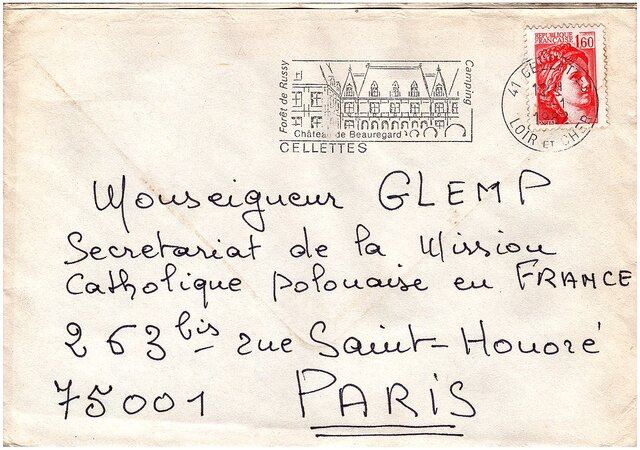 REPUBLIQUE
FRANÇAISE 1,60
Forêt de Russy
Camping
Château de Beauregard
CELLETTES
41
LOIR ET CHER
Monseigneur GLEMP
Secretariat de la Mission
Catholique polonaise en FRANCE
263 bis rue Saint-Honoré
75001 PARIS